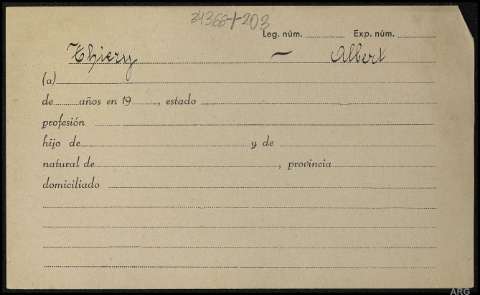 24368-1-203
Leg. núm. Exp. núm.
Thiery — Albert
(a)
de años en 19 , estado
profesión
hijo de y de
natural de , provincia
domiciliado
ARG